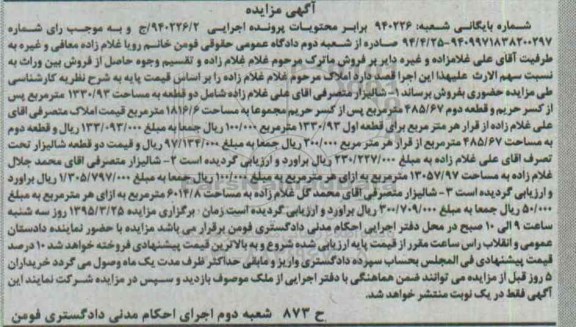 آگهی مزایده
شماره بایگانی شعبه: ۹۴۰۲۳۶ برابر محتویات پرونده اجرایی ۹۴۰۲۳۶/۲/ج و به موجب رای شماره
۹۴۰۹۹۷۱۸۳۸۲۰۰۲۹۷–۹۴/۴/۲۵ صادره از شعبه دوم دادگاه عمومی حقوقی فومن خانم رویا غلام زاده معافی و غیره به
طرفیت آقای علی غلامزاده و غیره دایر بر فروش ماترک مرحوم غلام غلام زاده و تقسیم وجوه حاصل از فروش بین وراث به
نسبت سهم الارث علیهذا این اجرا قصد دارد املاک مرحوم غلام غلام زاده را بر اساس قیمت پایه به شرح نظریه کارشناسی
طی مزایده حضوری بفروش برساند ۱- شالیزار متصرفی آقای علی غلام زاده شامل دو قطعه به مساحت ۱۳۳۰/۹۳ مترمربع پس
از کسر حریم و قطعه دوم ۴۸۵/۶۷ مترمربع پس از کسر حریم مجموعا به مساحت ۱۸۱۶/۶ مترمربع قیمت املاک متصرفی آقای
علی غلام زاده از قرار هر متر مربع برای قطعه اول ۱۳۳۰/۹۳ مترمربع ۱۰۰/۰۰۰ ریال جمعا به مبلغ ۱۳۳/۰۹۳/۰۰۰ ریال و قطعه دوم
به مساحت ۴۸۵/۶۷ مترمربع از قرار هر متر مربع ۲۰۰/۰۰۰ ریال جمعا به مبلغ ۹۷/۱۳۴/۰۰۰ ریال و قیمت دو قطعه شالیزار تحت
تصرف آقای علی غلام زاده به مبلغ ۲۳۰/۲۲۷/۰۰۰ ریال براورد و ارزیابی گردیده است ۲- شالیزار متصرفی آقای محمد جلال
غلام زاده به مساحت ۱۳۰۵۷/۹۷ مترمربع به ازای هر مترمربع به مبلغ ۱۰۰/۰۰۰ ریال جمعا به مبلغ ۱/۳۰۵/۷۹۷/۰۰۰ ریال براورد
و ارزیابی گردیده است ۳- شالیزار متصرفی آقای محمد گل غلام زاده به مساحت ۶۰۱۴/۸ مترمربع به ازای هر مترمربع به مبلغ
۵۰/۰۰۰ ریال جمعا به مبلغ ۳۰۰/۷۰۹/۰۰۰ ریال براورد و ارزیابی گردیده است زمان برگزاری مزایده ۱۳۹۵/۳/۲۵ روز سه شنبه
ساعت ۹ الی ۱۰ صبح در محل دفتر اجرایی احکام مدنی دادگستری فومن برقرار می باشد مزایده با حضور نماینده دادستان
عمومی و انقلاب راس ساعت مقرر از قیمت پایه ارزیابی شده شروع و به بالاترین قیمت پیشنهادی فروخته خواهد شد ۱۰ درصد
قیمت پیشنهادی فی المجلس بحساب سپرده دادگستری واریز و مابقی حداکثر ظرف مدت یک ماه وصول می گردد خریداران
۵ روز قبل از مزایده می توانند ضمن هماهنگی با دفتر اجرایی از ملک موصوف بازدید و سپس در مزایده شرکت نمایند این
آگهی فقط در یک نوبت منتشر خواهد شد.
ح ۸۷۳ شعبه دوم اجرای احکام مدنی دادگستری فومن